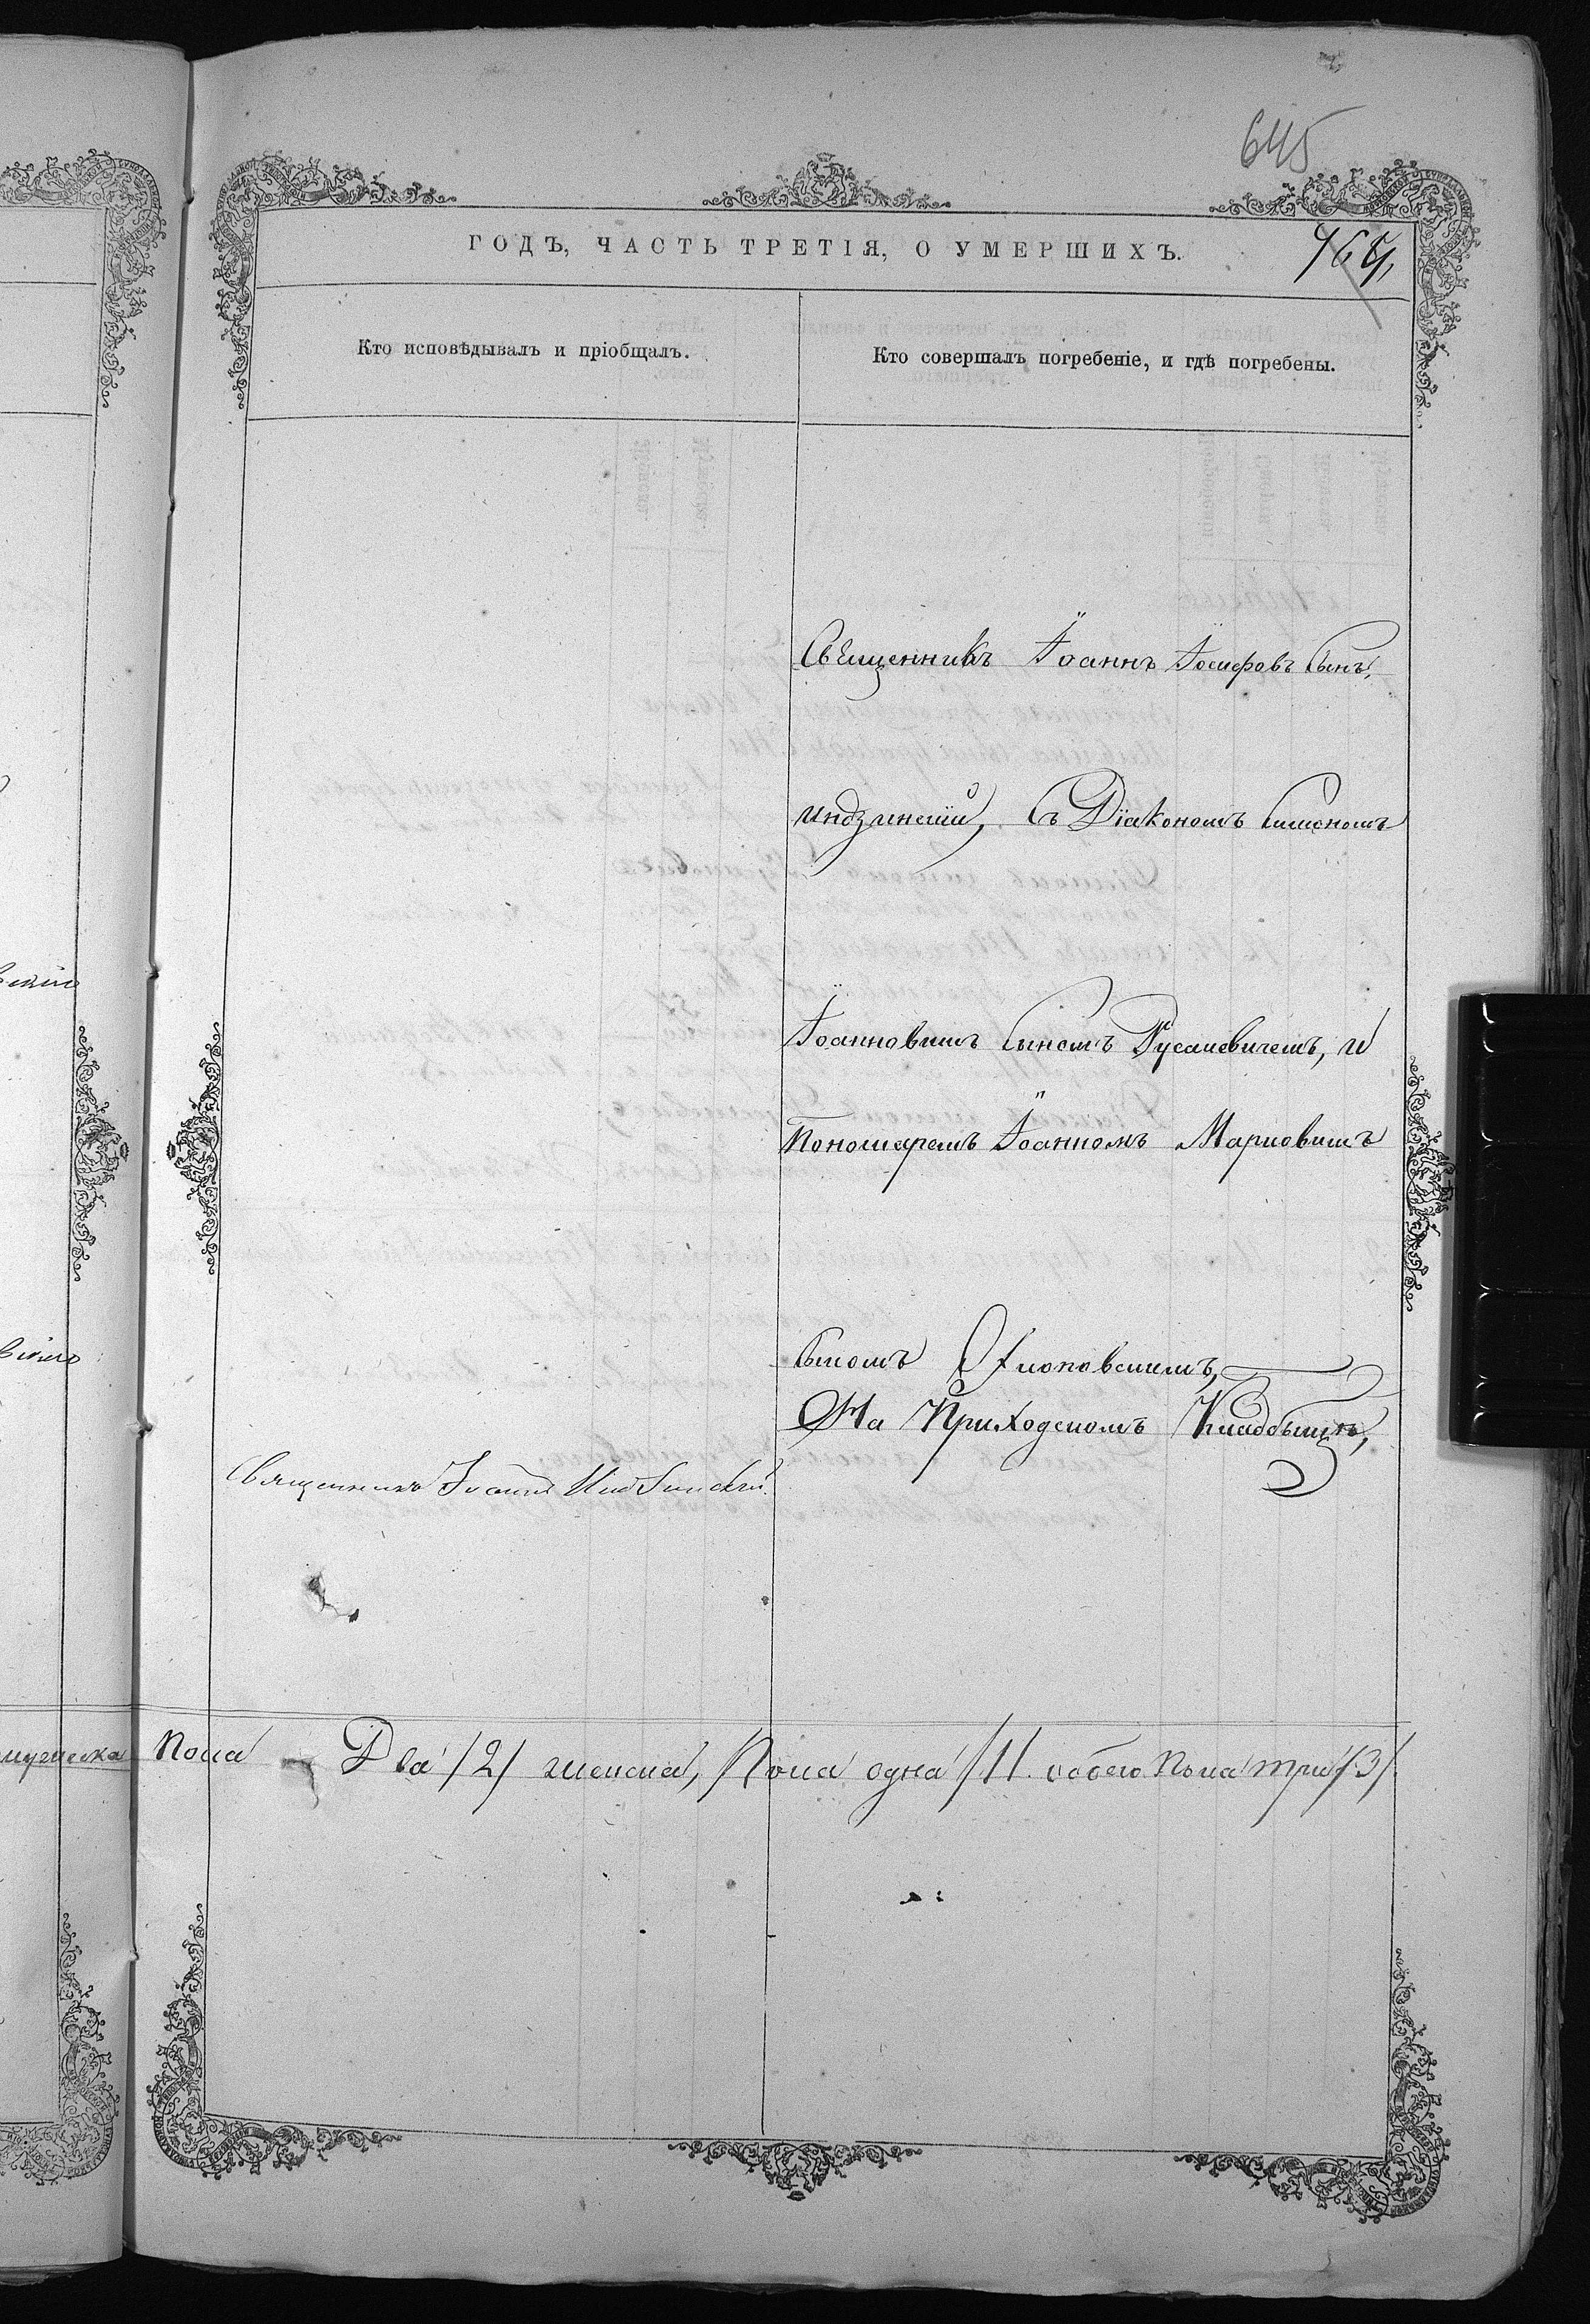 645
ГОДЪ, ЧАСТЬ ТРЕТІЯ, О УМЕРШИХЪ.
Кто исповѣдывалъ и пріобщалъ.
Кто совершалъ погребеніе, и гдѣ погребены.
Священникъ Іоаннъ Іосифовъ Сынъ,
Индзинскій, Съ Діакономъ Симеономъ
Іоанновымъ Сыномъ Русаневичемъ, И
Пономаремъ Іоанномъ Марковымъ
Сыномъ
На Приходскомъ Кладбыщѣ,
Священникъ Іоаннъ Индзинскій.
Пола Два /2/ женска, Пола одна /1/. обоего Пола три /3/